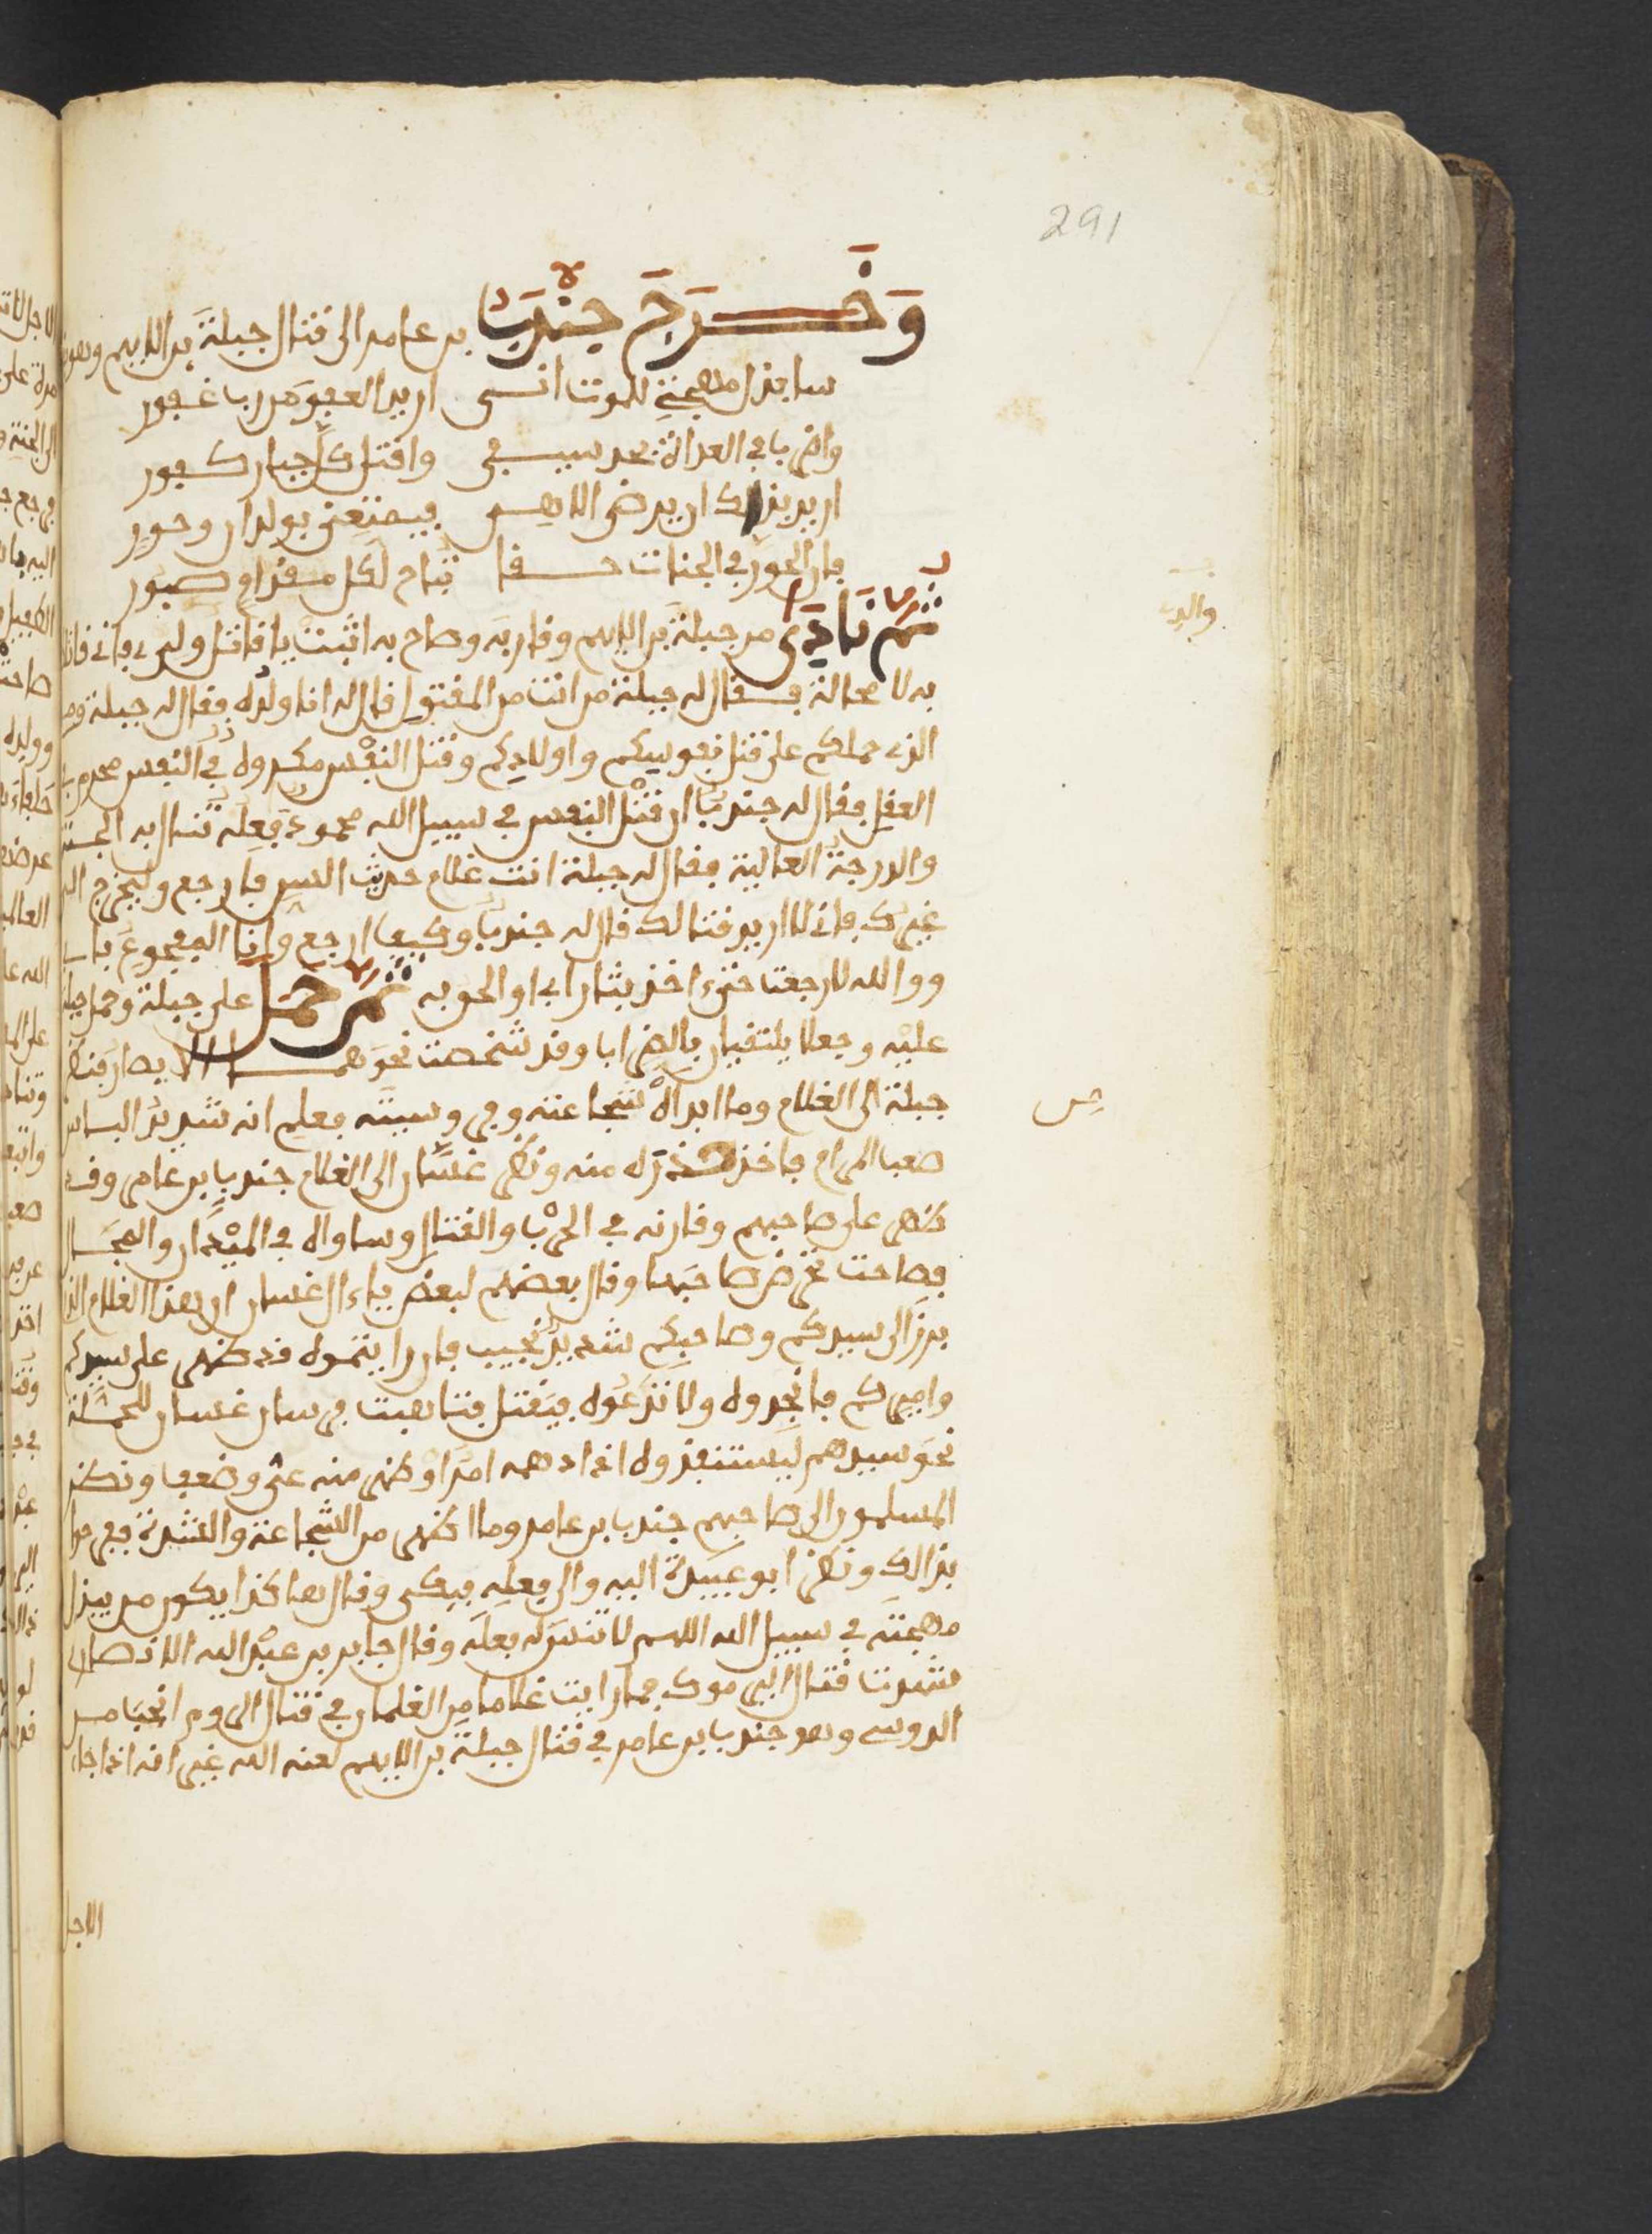 291
وَخَرَجَ جُنْدبَا بن عامر الى قتال جبلةَ بن الايهم وهو
سابذل مهجتي للموت انى اريد العفوَ من رب غفور
واضربا في العداة بحد سيفي واقتل كل جبار كفور
اريد بذالك ان يرضى الاهي فيمتعني بولدان وحور
فان الحور في الجنات حقا تباح لكل مقدام صبور
ثم نَادَى من جبلةَ بن الايهم وقاربَه وصاح به اثبت يا قاتل والدي فاني قاتل
والدي
به لا محالة فقال له جبلة من انت من المقتول قال له انا ولده فقال له جبلة وما
الذي حملكم على قتل نفوسكم واولادكم وقتل النفْس مكروه في النفس محرم
العقل فقال له جندبا ان قتْل النفس في سبيل الله محمود فعله تنال به الجنة
والدرجة العالية فقال له جبلة انت غلام حديث السن فارجع وليخرج الي
غيرك فاني لا اريد قتالك قال له جندبا وكيف ارجع وانا المفجوع بابي
ووالله لا رجعت حتى اخذ بثار ابي او الحق به ثم حمل على جبلة وحمل جبلة
عليْه وجعلا يلتقيان بالضراب وقد شخصت نحوَهما الابصار فنظر
جبلة الى الغلام وما ابداهْ شجاعته وفروسيته فعلم انه شديدُ الباس
صعب المرام فاخذ حذره منه ونظر غسان الى الغلام جندبا بن عامر وقد
ظهر على صاحبهم وقارنه في الحرْب والقتال وساواه في الميْدان والمجَال
فصاحت تحرض صاحبَها وقال بعضهم لبعض يا ال غسان ان هذا الغلام الذي
برزَ الى سيدكم وصاحبكم شديدٌ نجيب فان رايتموه قد ظهر على سيدكم
واميركم فانجدوه ولا تدعُوه فيقتل فتاهبت فرسان غسان للحملة
نحوَ سيدهم ليستنقذوه اذا دهمه امرًا او ظهر منه عثر وضعف ونظر
المسلمون الى صاحبهم جندبا بن عامر وما اظهر من الشجاعة والشدة ففرحوا
بذالك ونظر ابو عبيدة اليه والى فعله فبكى وقال هاكذا يكون من يبذل
مهجتَه في سبيل الله اللهم لا تنسَ له فعلَه وقال جابر بن عبْد الله الانصاري
شهدت قتال اليرموك فما رايت غلاما من الغلمان في قتال الروم انجبَ من
الدوسي وهو جندبا بن عامر في قتال جبلة بن الايهم لعنه الله غير انه اذا جاء
الاجل